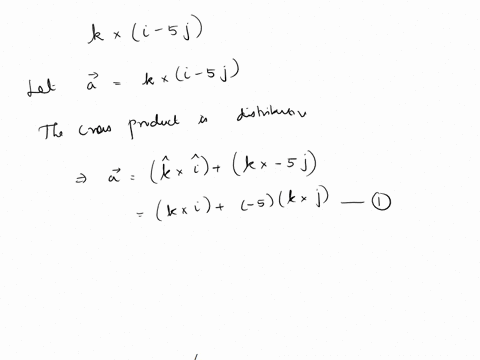 k × (i - 5j)
Let a⃗ = k × (i - 5j)
The cross product is distributive
⇒ a⃗ = (k̂ × î) + (k × -5j)
= (k × i) + (-5)(k × j) — ①